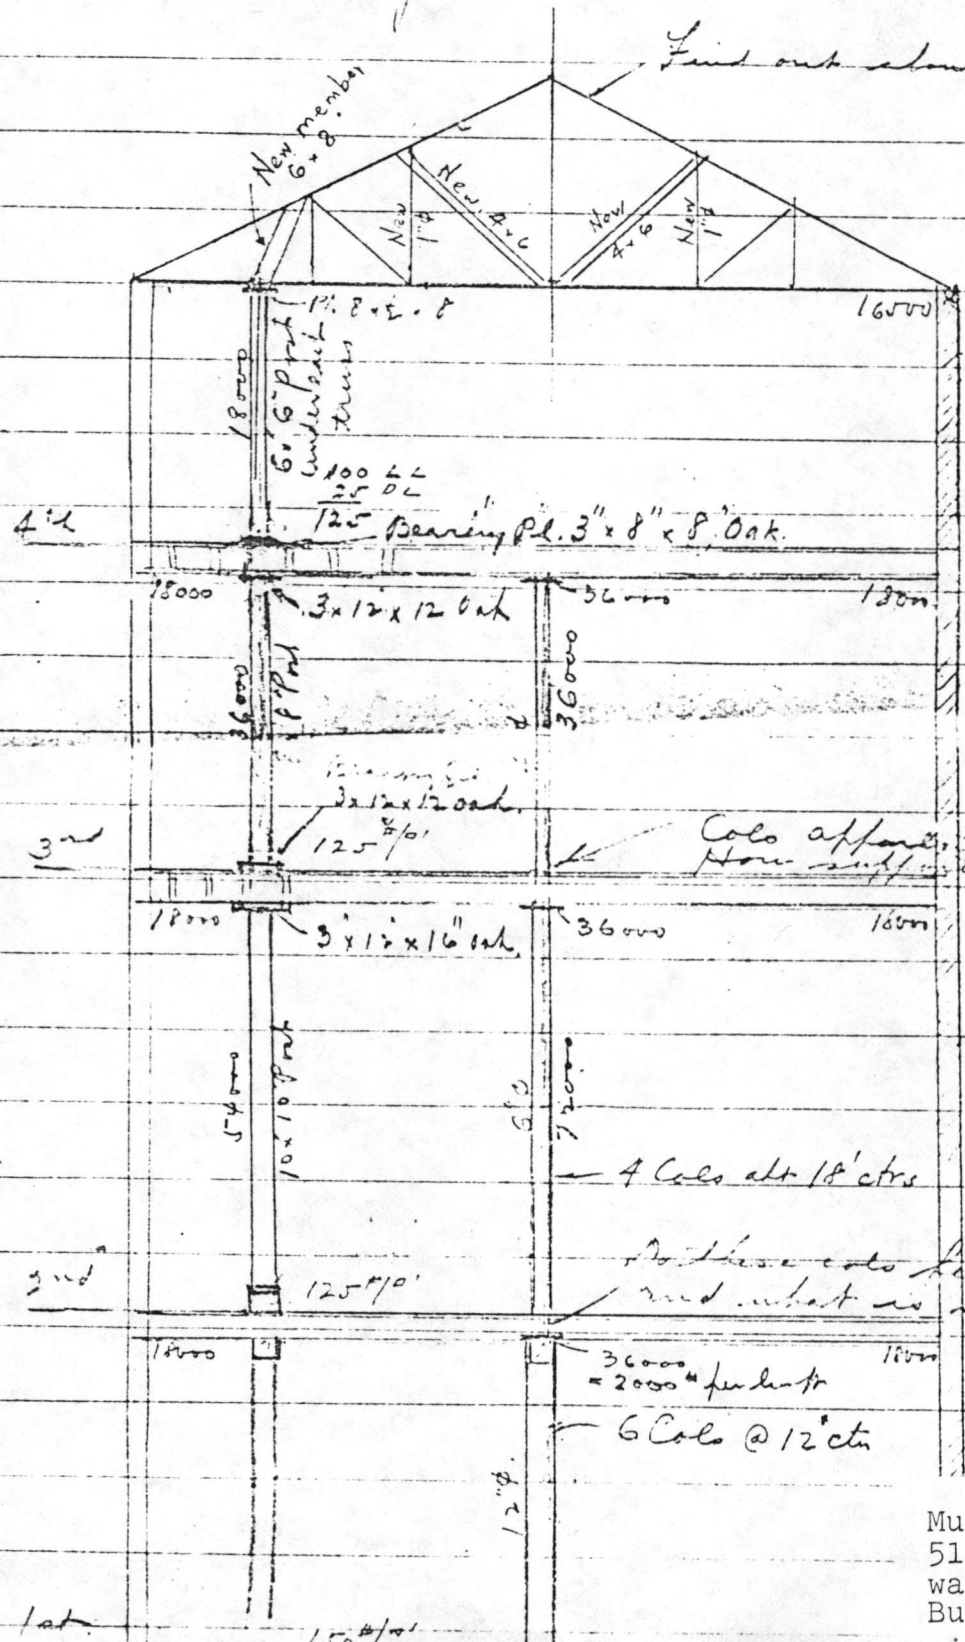 Find out
New member
6 x 8
New 4 x 6
New
1"ϕ
New
4 x 6
New
1"ϕ
16000
Pl. 8 x ½ x 8
18000
6 x 6 Post
under each
truss
100 LL
25 DL
125
4th
Bearing Pl. 3" x 8" x 8" Oak.
18000
3 x 12 x 12 Oak
36000
18000
36000
8" Post
36000
3 x 12 x 12 Oak.
125 #/□'
3rd
Cols
How
18000
3" x 12" x 16" Oak
36000
18000
54000
10 x 10 Post
72000
4 Cols abt 18' ctrs
Do these cols
and what is
2nd
125 #/□'
18000
36000
= 2000 # per lin ft
18000
6 Cols @ 12' ctrs
12"ϕ.
1st
Mu
51
wa
Bu